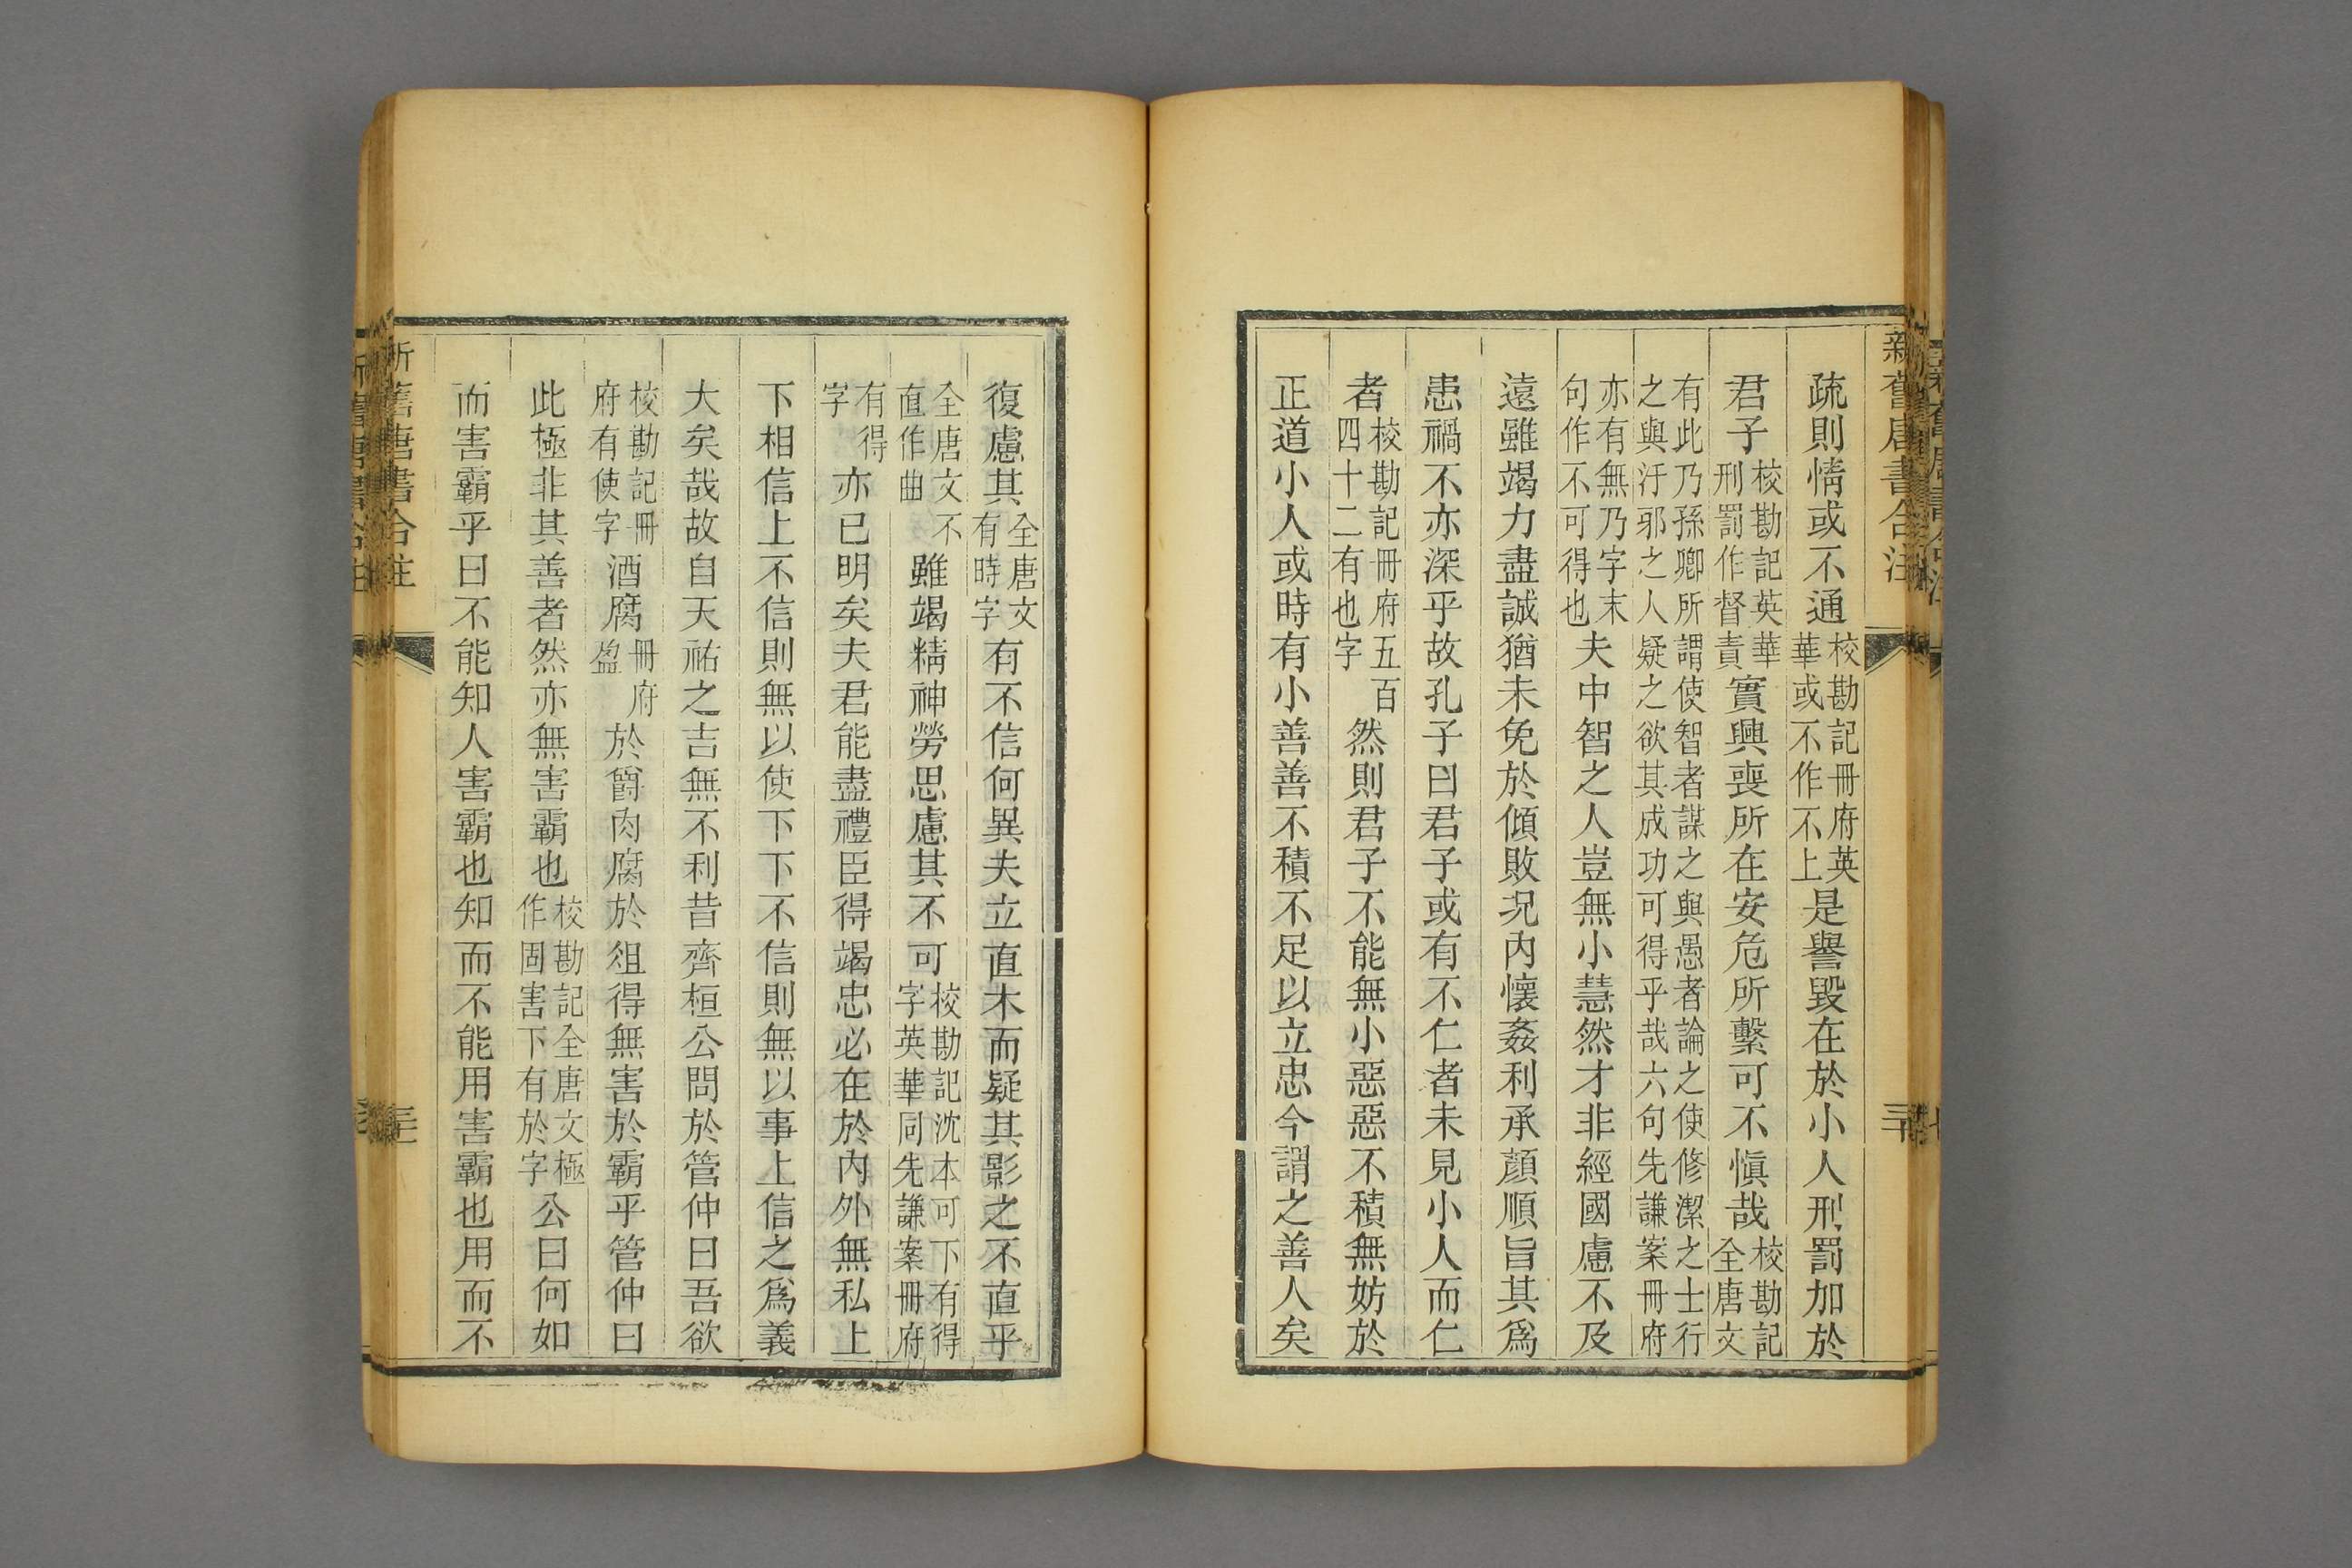 新舊唐書合注
疏則情或不通校勘記冊府英華或不作不上是譽毀在於小人刑罰加於
君子校勘記英華刑罰作督責實興喪所在安危所繫可不愼哉校勘記全唐文
有此乃孫卿所謂使智者謀之與愚者論之使修潔之士行之與汙邪之人疑之欲其成功可得乎哉六句先謙案冊府
亦有無乃字末句作不可得也夫中智之人豈無小慧然才非經國慮不及
遠雖竭力盡誠猶未免於傾敗況內懷姦利承顏順旨其爲
患禍不亦深乎故孔子曰君子或有不仁者未見小人而仁
者校勘記冊府五百四十二有也字然則君子不能無小惡惡不積無妨於
正道小人或時有小善善不積不足以立忠今謂之善人矣
復慮其全唐文有時字有不信何異夫立直木而疑其影之不直乎
全唐文不直作曲雖竭精神勞思慮其不可校勘記沈本可下有得字英華同先謙案冊府
有得字亦已明矣夫君能盡禮臣得竭忠必在於內外無私上
下相信上不信則無以使下下不信則無以事上信之爲義
大矣哉故自天祐之吉無不利昔齊桓公問於管仲曰吾欲
校勘記冊府有使字酒腐冊府盈於爵肉腐於俎得無害於霸乎管仲曰
此極非其善者然亦無害霸也校勘記全唐文極作固害下有於字公曰何如
而害霸乎曰不能知人害霸也知而不能用害霸也用而不
舊唐書合注